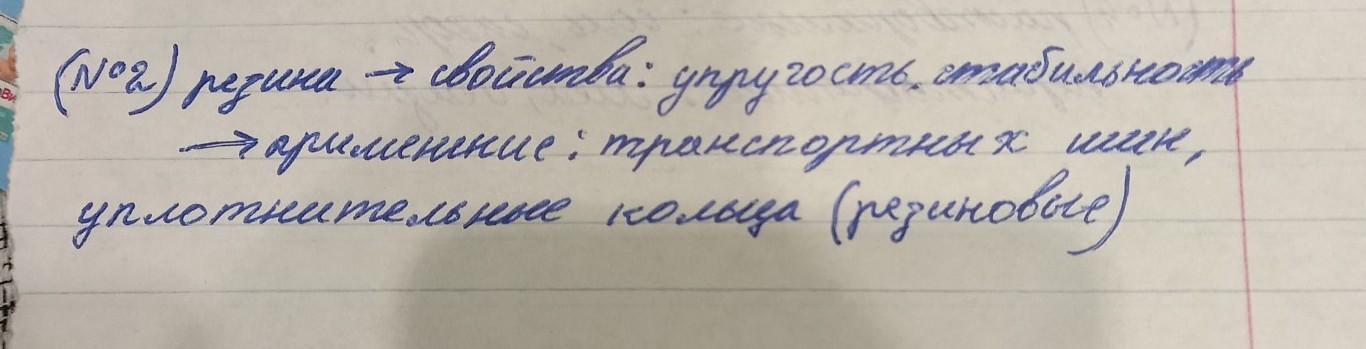 (№2) резина → свойства: упругость, стабильность
→ применение: транспортных шин,
уплотнительные кольца (резиновые)